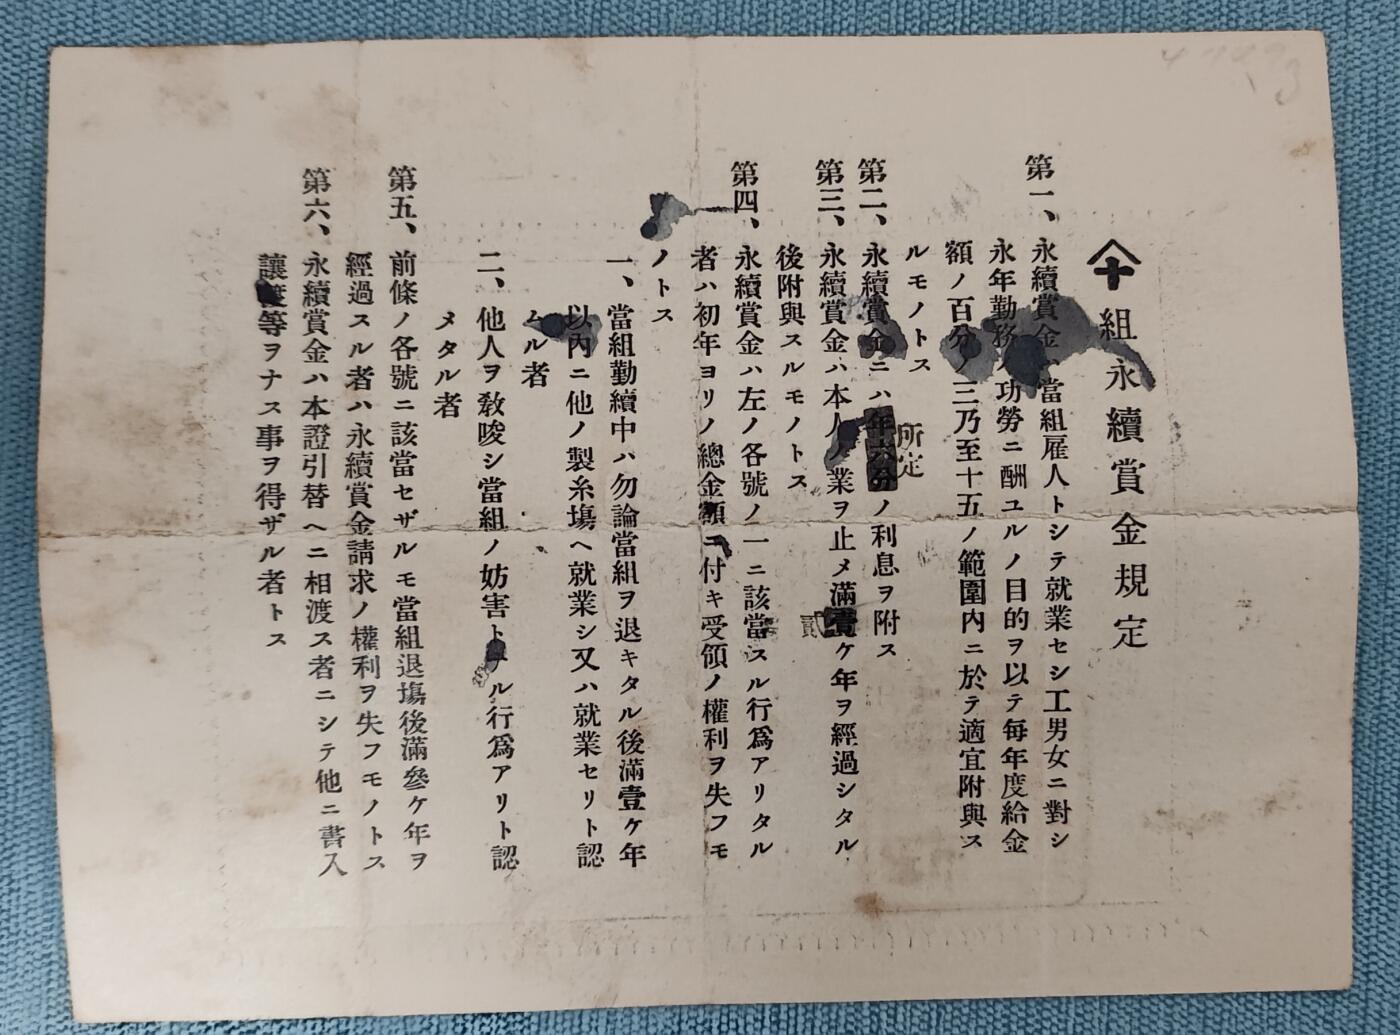 組永續賞金規定
第一、永續賞金ハ當組雇人トシテ就業セシ工男女ニ對シ
永年勤務ノ功勞ニ酬ユルノ目的ヲ以テ每年度給金
額ノ百分ノ三乃至十五ノ範圍内ニ於テ適宜附與ス
ルモノトス
所定
第二、永續賞金ニハ年六分ノ利息ヲ附ス
第三、永續賞金ハ本人ノ業ヲ止メ滿壹ケ年ヲ經過シタル
貳
後附與スルモノトス
第四、永續賞金ハ左ノ各號ノ一ニ該當スル行爲アリタル
者ハ初年ヨリノ總金額ニ付キ受領ノ權利ヲ失フモ
ノトス
一、當組勤續中ハ勿論當組ヲ退キタル後滿壹ケ年
以內ニ他ノ製糸塲ヘ就業シ又ハ就業セリト認
ムル者
二、他人ヲ敎唆シ當組ノ妨害ト ル行爲アリト認
メタル者
第五、前條ノ各號ニ該當セザルモ當組退塲後滿參ケ年ヲ
經過スル者ハ永續賞金請求ノ權利ヲ失フモノトス
第六、永續賞金ハ本證引替ヘニ相渡ス者ニシテ他ニ書入
讓渡等ヲナス事ヲ得ザル者トス